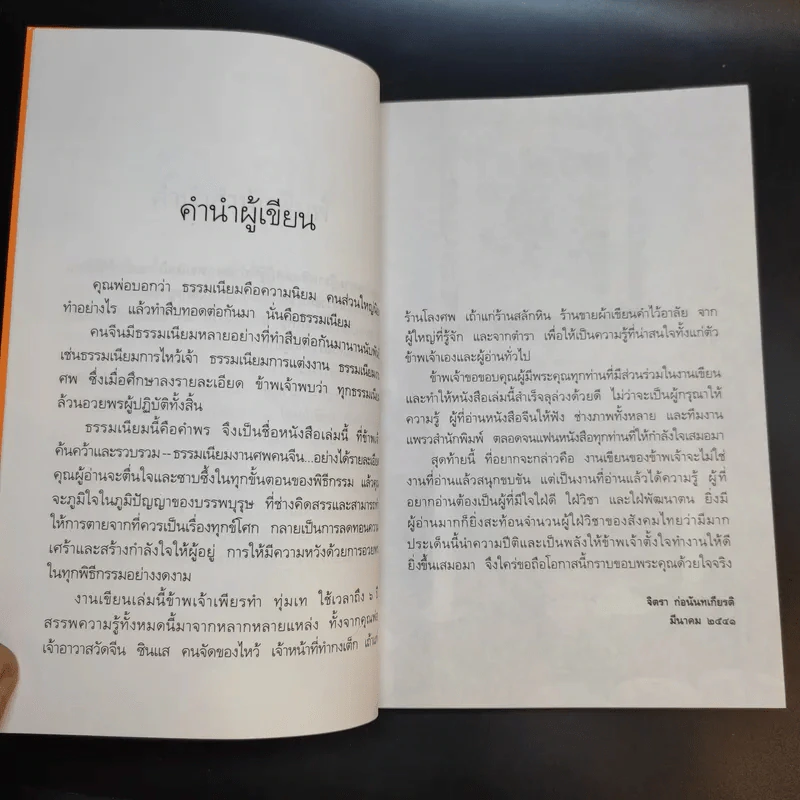 คำนำผู้เขียน
คุณพ่อบอกว่า ธรรมเนียมคือความนิยม คนส่วนใหญ่
ทำอย่างไร แล้วทำสืบทอดต่อกันมา นั่นคือธรรมเนียม
คนจีนมีธรรมเนียมหลายอย่างที่ทำสืบต่อกันมานานนับ
เช่นธรรมเนียมการไหว้เจ้า ธรรมเนียมการแต่งงาน ธรรมเนียม
ศพ ซึ่งเมื่อศึกษาลงรายละเอียด ข้าพเจ้าพบว่า ทุกธรรมเนียม
ล้วนอวยพรผู้ปฏิบัติทั้งสิ้น
ธรรมเนียมนี้คือคำพร จึงเป็นชื่อหนังสือเล่มนี้ ที่ข้าพเจ้า
ค้นคว้าและรวบรวม--ธรรมเนียมงานศพคนจีน...อย่างได้รายละเอียด
คุณผู้อ่านจะตื่นใจและซาบซึ้งในทุกขั้นตอนของพิธีกรรม แล้ว
จะภูมิใจในภูมิปัญญาของบรรพบุรุษ ที่ช่างคิดสรรและสามารถ
ให้การตายจากที่ควรเป็นเรื่องทุกข์โศก กลายเป็นการลดทอนความ
เศร้าและสร้างกำลังใจให้ผู้อยู่ การให้มีความหวังด้วยการอวยพร
ในทุกพิธีกรรมอย่างงดงาม
งานเขียนเล่มนี้ข้าพเจ้าเพียรทำ ทุ่มเท ใช้เวลาถึง ๖ ปี
สรรพความรู้ทั้งหมดนี้มาจากหลากหลายแหล่ง ทั้งจากคุณพ่อ
เจ้าอาวาสวัดจีน ซินแส คนจัดของไหว้ เจ้าหน้าที่ทำกงเต็ก เถ้าแก่
ร้านโลงศพ เถ้าแก่ร้านสลักหิน ร้านขายผ้าเขียนคำไว้อาลัย จาก
ผู้ใหญ่ที่รู้จัก และจากตำรา เพื่อให้เป็นความรู้ที่น่าสนใจทั้งแก่ตัว
ข้าพเจ้าเองและผู้อ่านทั่วไป
ข้าพเจ้าขอขอบคุณผู้มีพระคุณทุกท่านที่มีส่วนร่วมในงานเขียน
และทำให้หนังสือเล่มนี้สำเร็จลุล่วงด้วยดี ไม่ว่าจะเป็นผู้กรุณาให้
ความรู้ ผู้ที่อ่านหนังสือจีนให้ฟัง ช่างภาพทั้งหลาย และทีมงาน
แพรวสำนักพิมพ์ ตลอดจนแฟนหนังสือทุกท่านที่ให้กำลังใจเสมอมา
สุดท้ายนี้ ที่อยากจะกล่าวคือ งานเขียนของข้าพเจ้าจะไม่ใช่
งานที่อ่านแล้วสนุกขบขัน แต่เป็นงานที่อ่านแล้วได้ความรู้ ผู้ที่
อยากอ่านต้องเป็นผู้ที่มีใจใฝ่ดี ใฝ่วิชา และใฝ่พัฒนาตน ยิ่งมี
ผู้อ่านมากก็ยิ่งสะท้อนจำนวนผู้ใฝ่วิชาของสังคมไทยว่ามีมาก
ประเด็นนี้นำความปีติและเป็นพลังให้ข้าพเจ้าตั้งใจทำงานให้ดี
ยิ่งขึ้นเสมอมา จึงใคร่ขอถือโอกาสนี้กราบขอบพระคุณด้วยใจจริง
จิตรา ก่อนันทเกียรติ
มีนาคม ๒๕๔๑